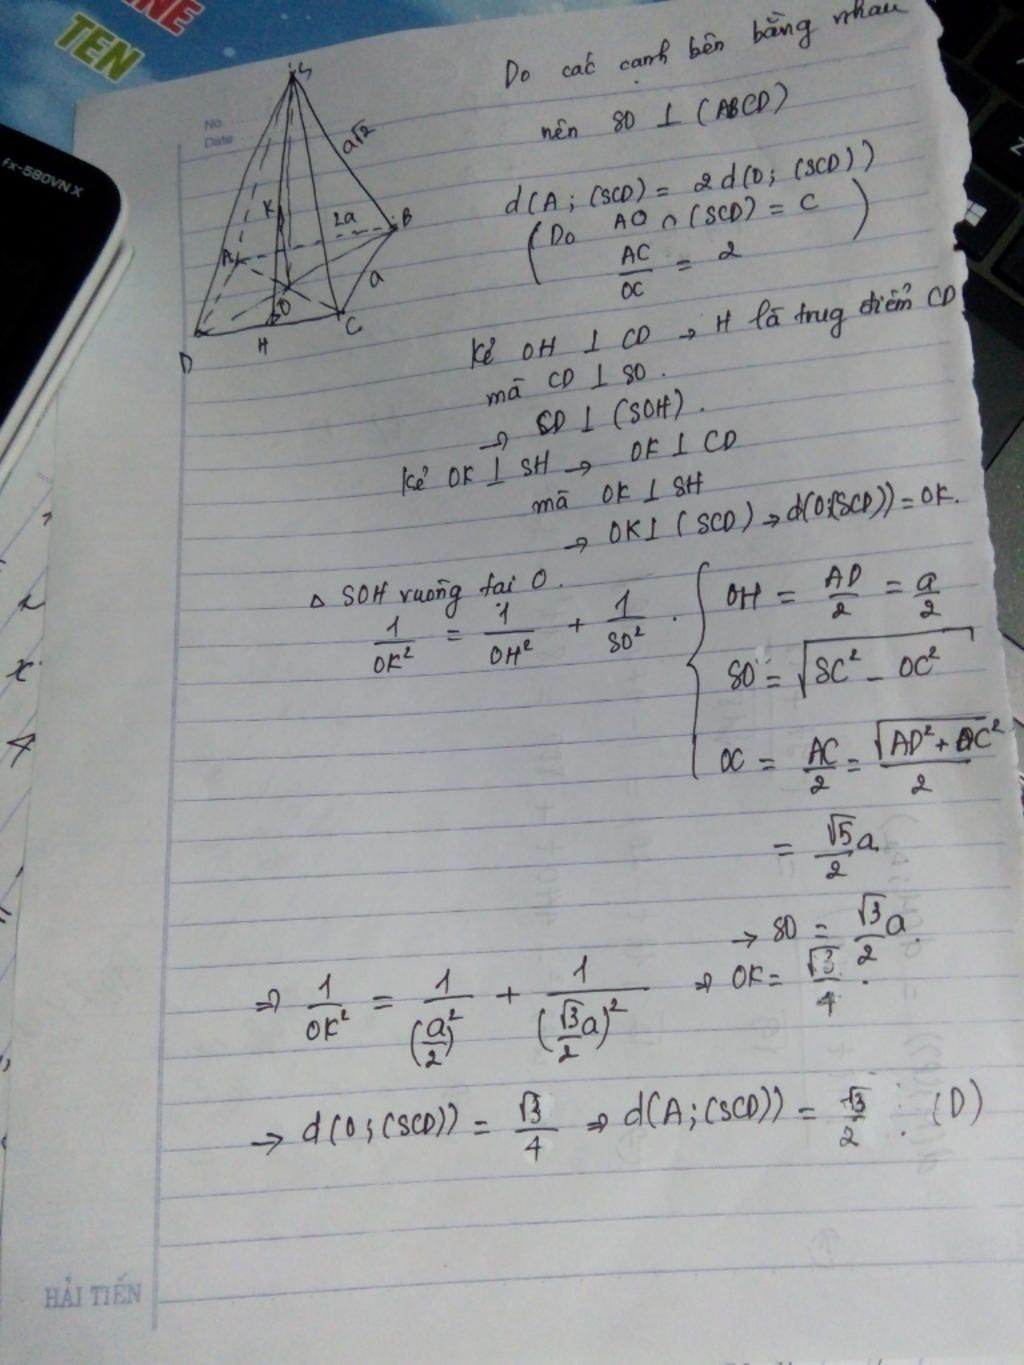 NE
TEN
fx-580VN X
No.
Date
S
a√2
K
2a
A
B
a
O
C
D
H
Do các cạnh bên bằng nhau
nên SO ⊥ (ABCD)
d(A; (SCD) = 2d(O; (SCD))
(Do AO ∩ (SCD) = C
AC/OC = 2)
Kẻ OH ⊥ CD → H là trug điểm CD
mà CD ⊥ SO.
→ CD ⊥ (SOH).
Kẻ OK ⊥ SH → OK ⊥ CD
mà OK ⊥ SH
→ OK ⊥ (SCD) → d(O;(SCD)) = OK.
Δ SOH vuông tại O.
1/OK² = 1/OH² + 1/SO² .
{ OH = AD/2 = a/2
SO = √(SC² - OC²)
OC = AC/2 = √(AD² + DC²)/2
= √5/2 a.
→ SO = √3/2 a.
⇒ 1/OK² = 1/(a/2)² + 1/(√3/2 a)² ⇒ OK = √3/4 .
→ d(O; (SCD)) = √3/4 ⇒ d(A; (SCD)) = √3/2 . (D)
HẢI TIẾN